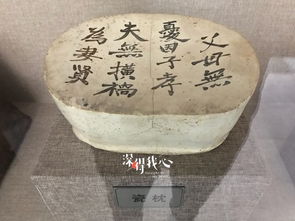 父母無
憂因子孝
夫無橫禍
為妻賢
深得我心
瓷枕